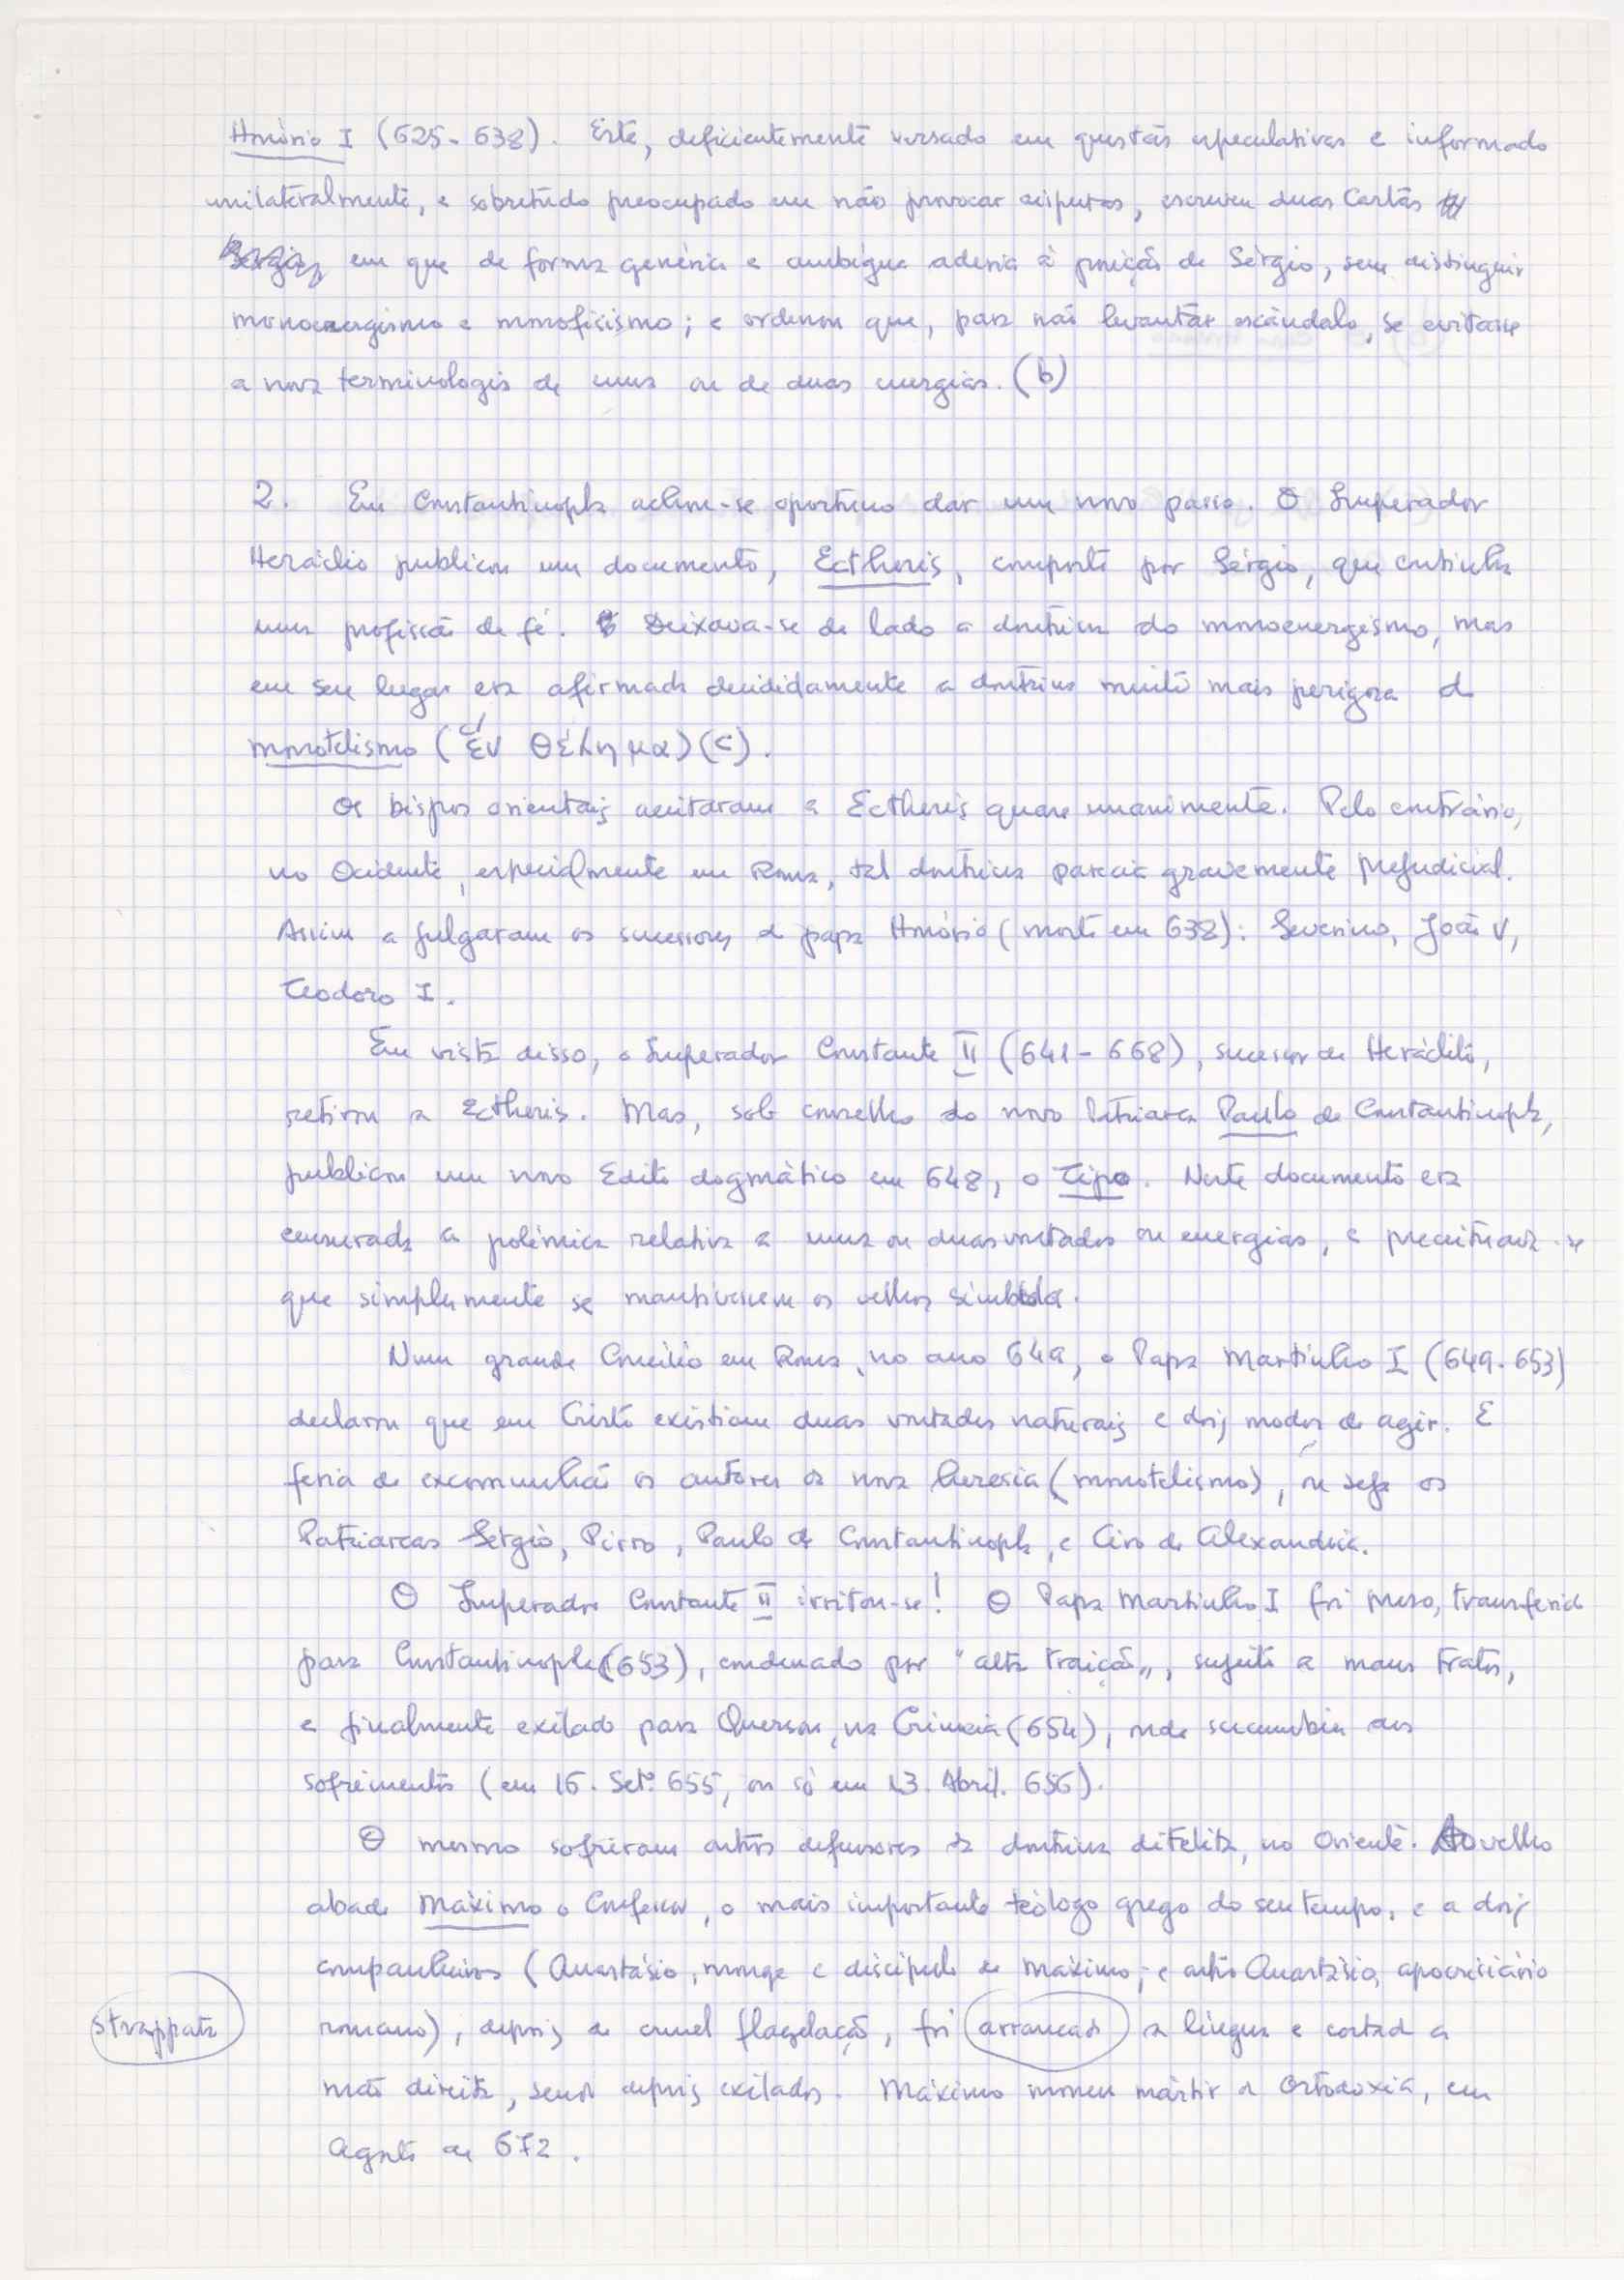 Honório I (625-638). Este, deficientemente versado em questões especulativas e informado
unilateralmente, e sobretudo preocupado em não provocar disputas, escreveu duas Cartas
em que de forma genérica e ambígua aderia à posição de Sérgio, sem distinguir
monoenergismo e monofisismo; e ordenou que, para não levantar escândalo, se evitasse
a nova terminologia de uma ou de duas energias. (b)
2. Em Constantinopla achou-se oportuno dar um novo passo. O Imperador
Heráclio publicou um documento, Ecthesis, composto por Sérgio, que continha
uma profissão de fé. Deixava-se de lado a doutrina do monoenergismo, mas
em seu lugar era afirmada decididamente a doutrina muito mais perigosa do
monotelismo (ἕν θέλημα) (c).
Os bispos orientais aceitaram a Ecthesis quase unanimente. Pelo contrário,
no Ocidente, especialmente em Roma, tal doutrina parecia gravemente prejudicial.
Assim a julgaram os sucessores do papa Honório (morto em 638): Severino, João V,
Teodoro I.
Em vista disso, o Imperador Constante II (641-668), sucessor de Heráclito,
retirou a Ecthesis. Mas, sob conselho do novo Patriarca Paulo de Constantinopla,
publicou um novo Edito dogmático em 648, o Tipo. Neste documento era
censurada a polémica relativa a uma ou duas vontades ou energias, e preceituava-se
que simplesmente se mantivessem os velhos símbolos.
Num grande Concílio em Roma, no ano 649, o Papa Martinho I (649-653)
declarou que em Cristo existiam duas vontades naturais e dois modos de agir. E
feria de excomunhão os autores da nova heresia (monotelismo), ou seja os
Patriarcas Sérgio, Pirro, Paulo de Constantinopla, e Ciro de Alexandria.
O Imperador Constante II irritou-se! O Papa Martinho I foi preso, transferido
para Constantinopla (653), condenado por "alta traição", sujeito a maus tratos,
e finalmente exilado para Querson, na Crimeia (654), onde sucumbiu aos
sofrimentos (em 16. Set.º 655, ou só em 13. Abril. 656).
O mesmo sofreram outros defensores da doutrina ditelita, no Oriente. Ao velho
abade Máximo o Confessor, o mais importante teólogo grego do seu tempo, e a dois
companheiros (Anastásio, monge e discípulo de Máximo; e outro Anastásio, apocrisiário
romano), depois de cruel flagelação, foi arrancada a língua e cortada a
strappata
mão direita, sendo depois exilados. Máximo morreu mártir da Ortodoxia, em
Agosto de 672.